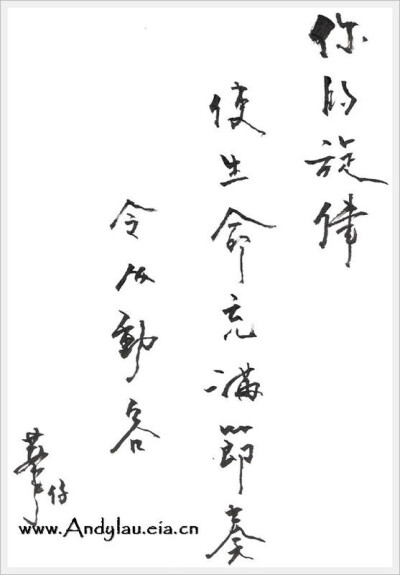 你的旋律
使生命充滿節奏
令 動容
華仔
www.Andylau.eia.cn